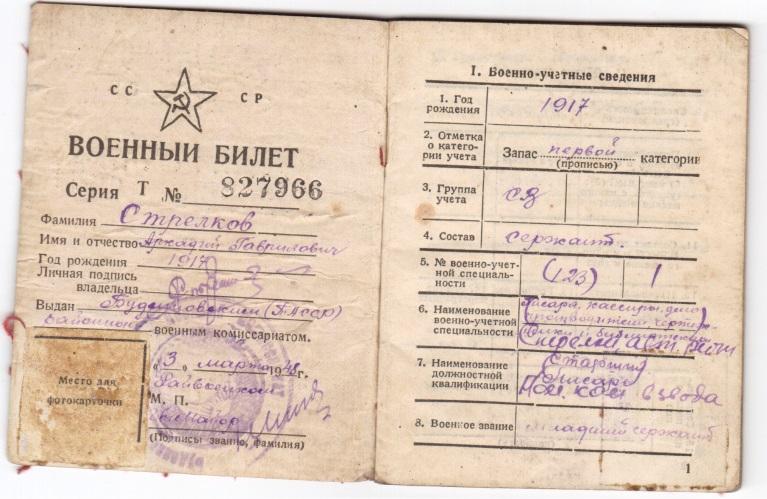 СС СР
ВОЕННЫЙ БИЛЕТ
Серия Т № 827966
Фамилия Стрелков
Имя и отчество Аркадий Гаврилович
Год рождения 1917
Личная подпись
владельца
Выдан Буденновским
районным военным комиссариатом.
"3" марта 1948 г.
Райвоенком
М. П.
(Подписы звание, фамилия)
Место для
фотокарточки
I. Военно-учетные сведения
1. Год
рождения 1917
2. Отметка
о катего-
рии учета
Запас первой категории
(прописью)
3. Группа
учета
4. Состав сержант.
5. № военно-учет-
ной специаль-
ности (123) 1
6. Наименование
военно-учетной
специальности
Писаря, кассиры, дело
производители, чертеж
7. Наименование
должностной
квалификации
Старший
писарь
Пом. ком взвода
8. Военное звание младший сержант
1